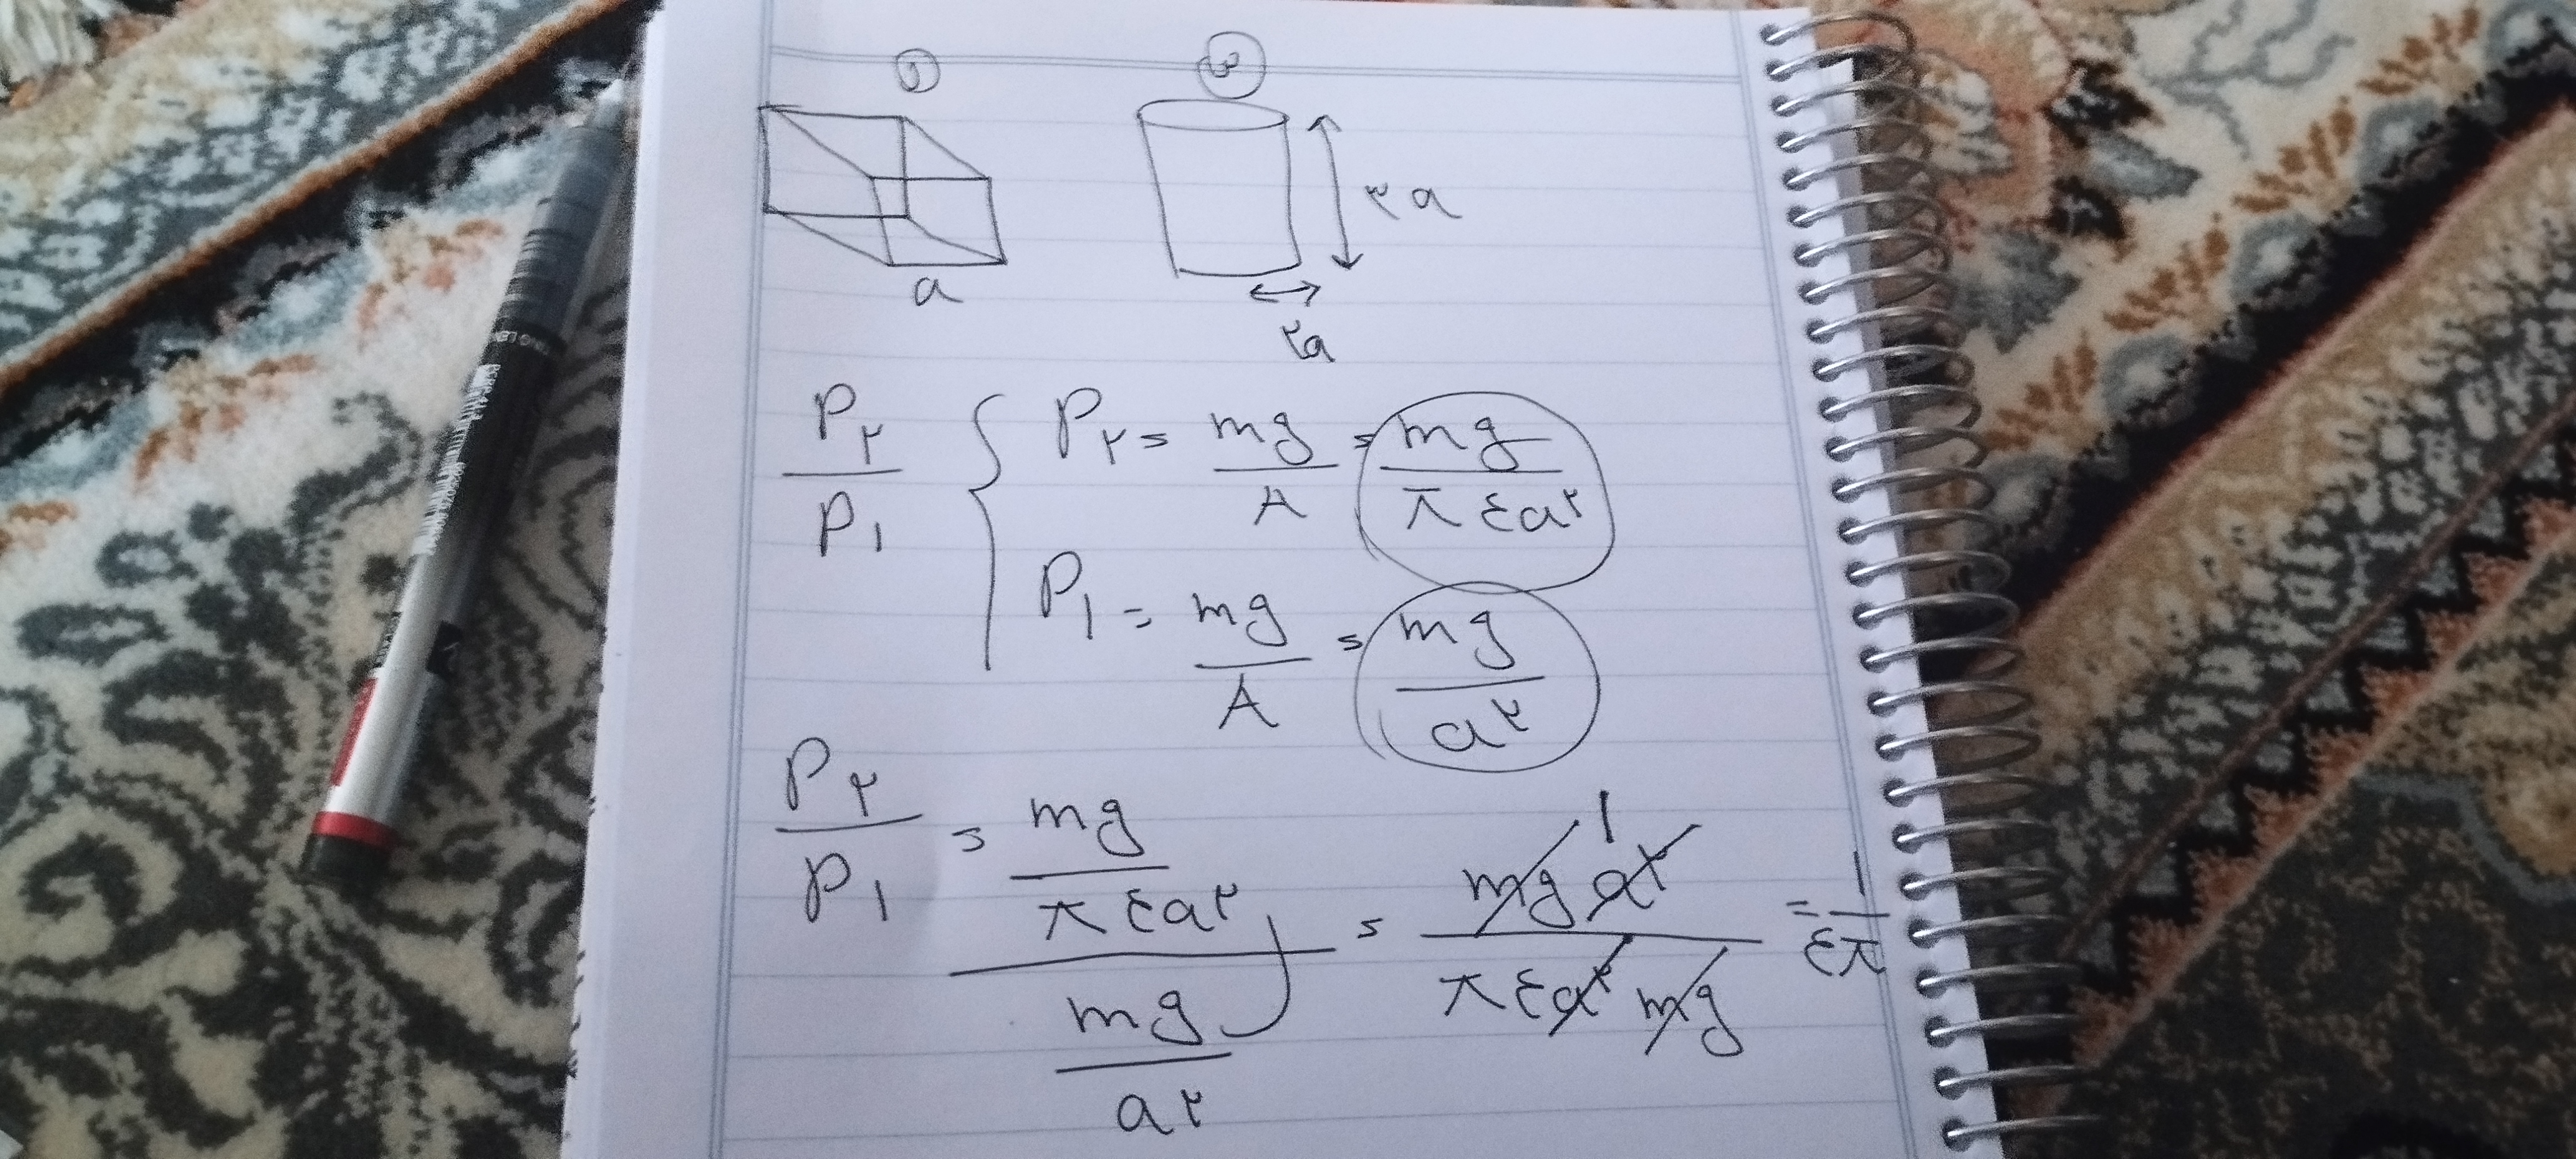 ① ③
۲a
a
۲a
P۲/P۱ { P۲ = mg/A = mg/π۴a^۲
P۱ = mg/A = mg/a^۲
P۲/P۱ = (mg/π۴a^۲)/(mg/a^۲) = mg a^۲/π۴a^۲ mg = ۱/۴π
۱